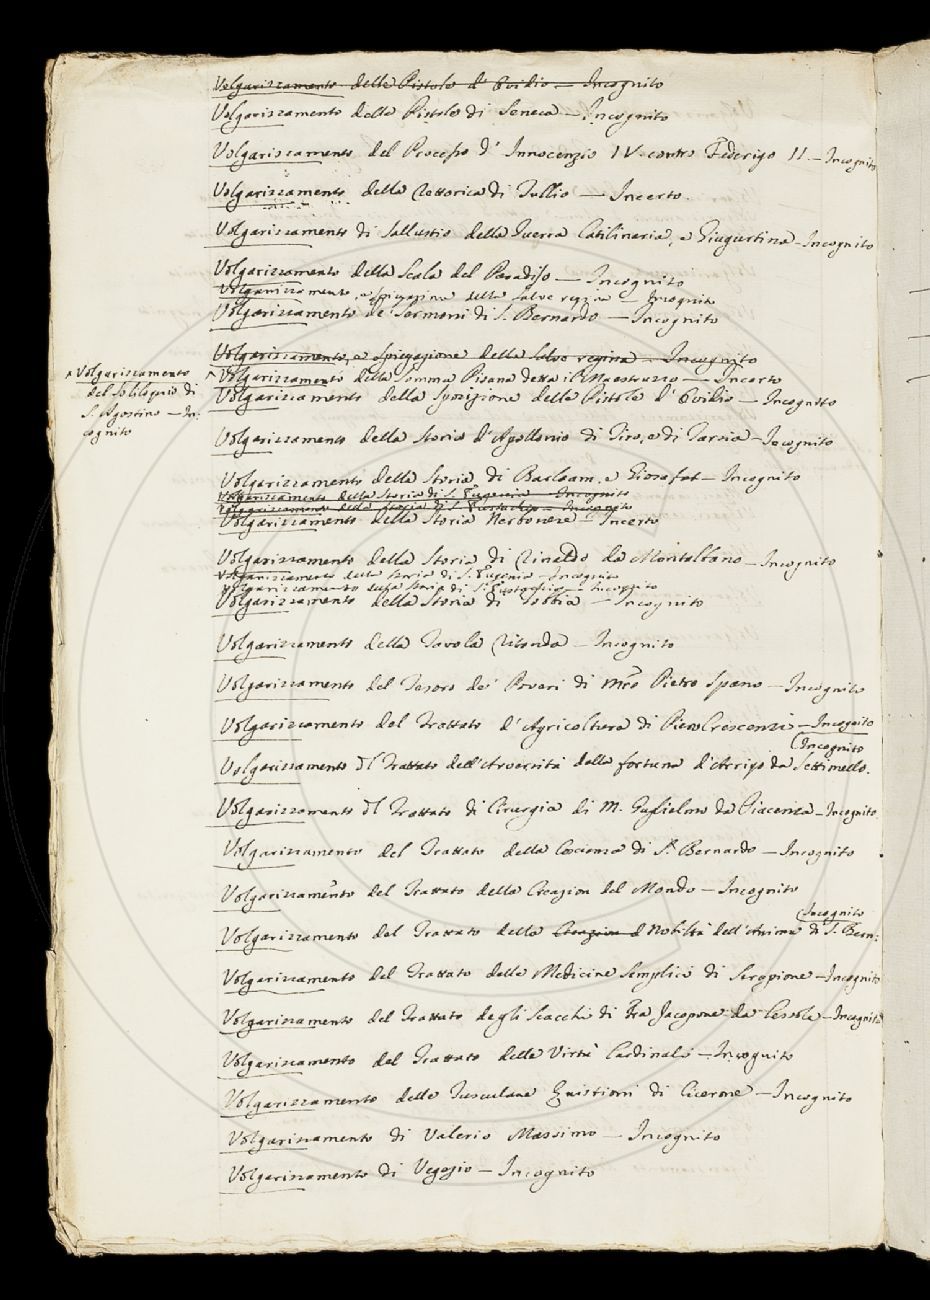 Volgarizzamento delle Pistole d'Ovidio — Incognito
Volgarizzamento delle Pistole di Seneca — Incognito
Volgarizzamento del Processo d'Innocenzio IV. contro Federigo II — Incognito
Volgarizzamento della Rettorica di Tullio — Incerto.
Volgarizzamento di Sallustio della Guerra Catilinaria, e Giugurtina — Incognito
Volgarizzamento della Scala del Paradiso — Incognito
Volgarizzamento, e spiegazione della Salve regina — Incognito
Volgarizzamento de' Sermoni di S. Bernardo — Incognito
Volgarizzamento, e Spiegazione della Salve regina — Incognito
^ Volgarizzamento
del Soliloquio di
S. Agostino — In-
cognito
^ Volgarizzamento della Somma Pisana detta il Maestruzzo — Incerto
Volgarizzamento della Sposizione delle Pistole d'Ovidio — Incognito
Volgarizzamento della Storia d'Apollonio di Tiro, e di Tarsia — Incognito
Volgarizzamento della Storia di Barlaam, e Giosafat — Incognito
Volgarizzamento della Storia di S. Eugenia — Incognito
Volgarizzamento della Storia di S. Eustachio — Incognito
Volgarizzamento della Storia Nerbonese — Incerto
Volgarizzamento della Storia di Rinaldo da Montalbano — Incognito
Volgarizzamento della Storia di S. Eugenia — Incognito
Volgarizzamento della Storia di S. Eustachio — Incognito
Volgarizzamento della Storia di Tobbia — Incognito
Volgarizzamento della Tavola Ritonda — Incognito
Volgarizzamento del Tesoro de' Poveri di Mro Pietro Spano — Incognito
Volgarizzamento del Trattato d'Agricoltura di Piero Crescenzi — Incognito
(Incognito
Volgarizzamento dl Trattato dell'Avversità della fortuna d'Arrigo da Settimello.
Volgarizzamento dl Trattato di Cirurgia di M. Guglielmo da Piacenza — Incognito.
Volgarizzamento del Trattato della Coscienza di S. Bernardo — Incognito
Volgarizzamento del Trattato della Creazion del Mondo — Incognito
(Incognito
Volgarizzamento del Trattato della Creazion d Nobiltà dell'Anima di S. Bern:
Volgarizzamento del Trattato delle Medicine Semplici di Serapione — Incognito
Volgarizzamento del Trattato degli Scacchi di Fra Jacopone da Cessole — Incognito
Volgarizzamento del Trattato delle Virtù Cardinali — Incognito
Volgarizzamento delle Tusculane Quistioni di Cicerone — Incognito
Volgarizzamento di Valerio Massimo — Incognito
Volgarizzamento di Vegezio — Incognito